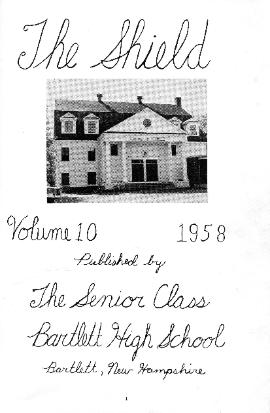 The Shield
Volume 10 1958
Published by
The Senior Class
Bartlett High School
Bartlett, New Hampshire
1